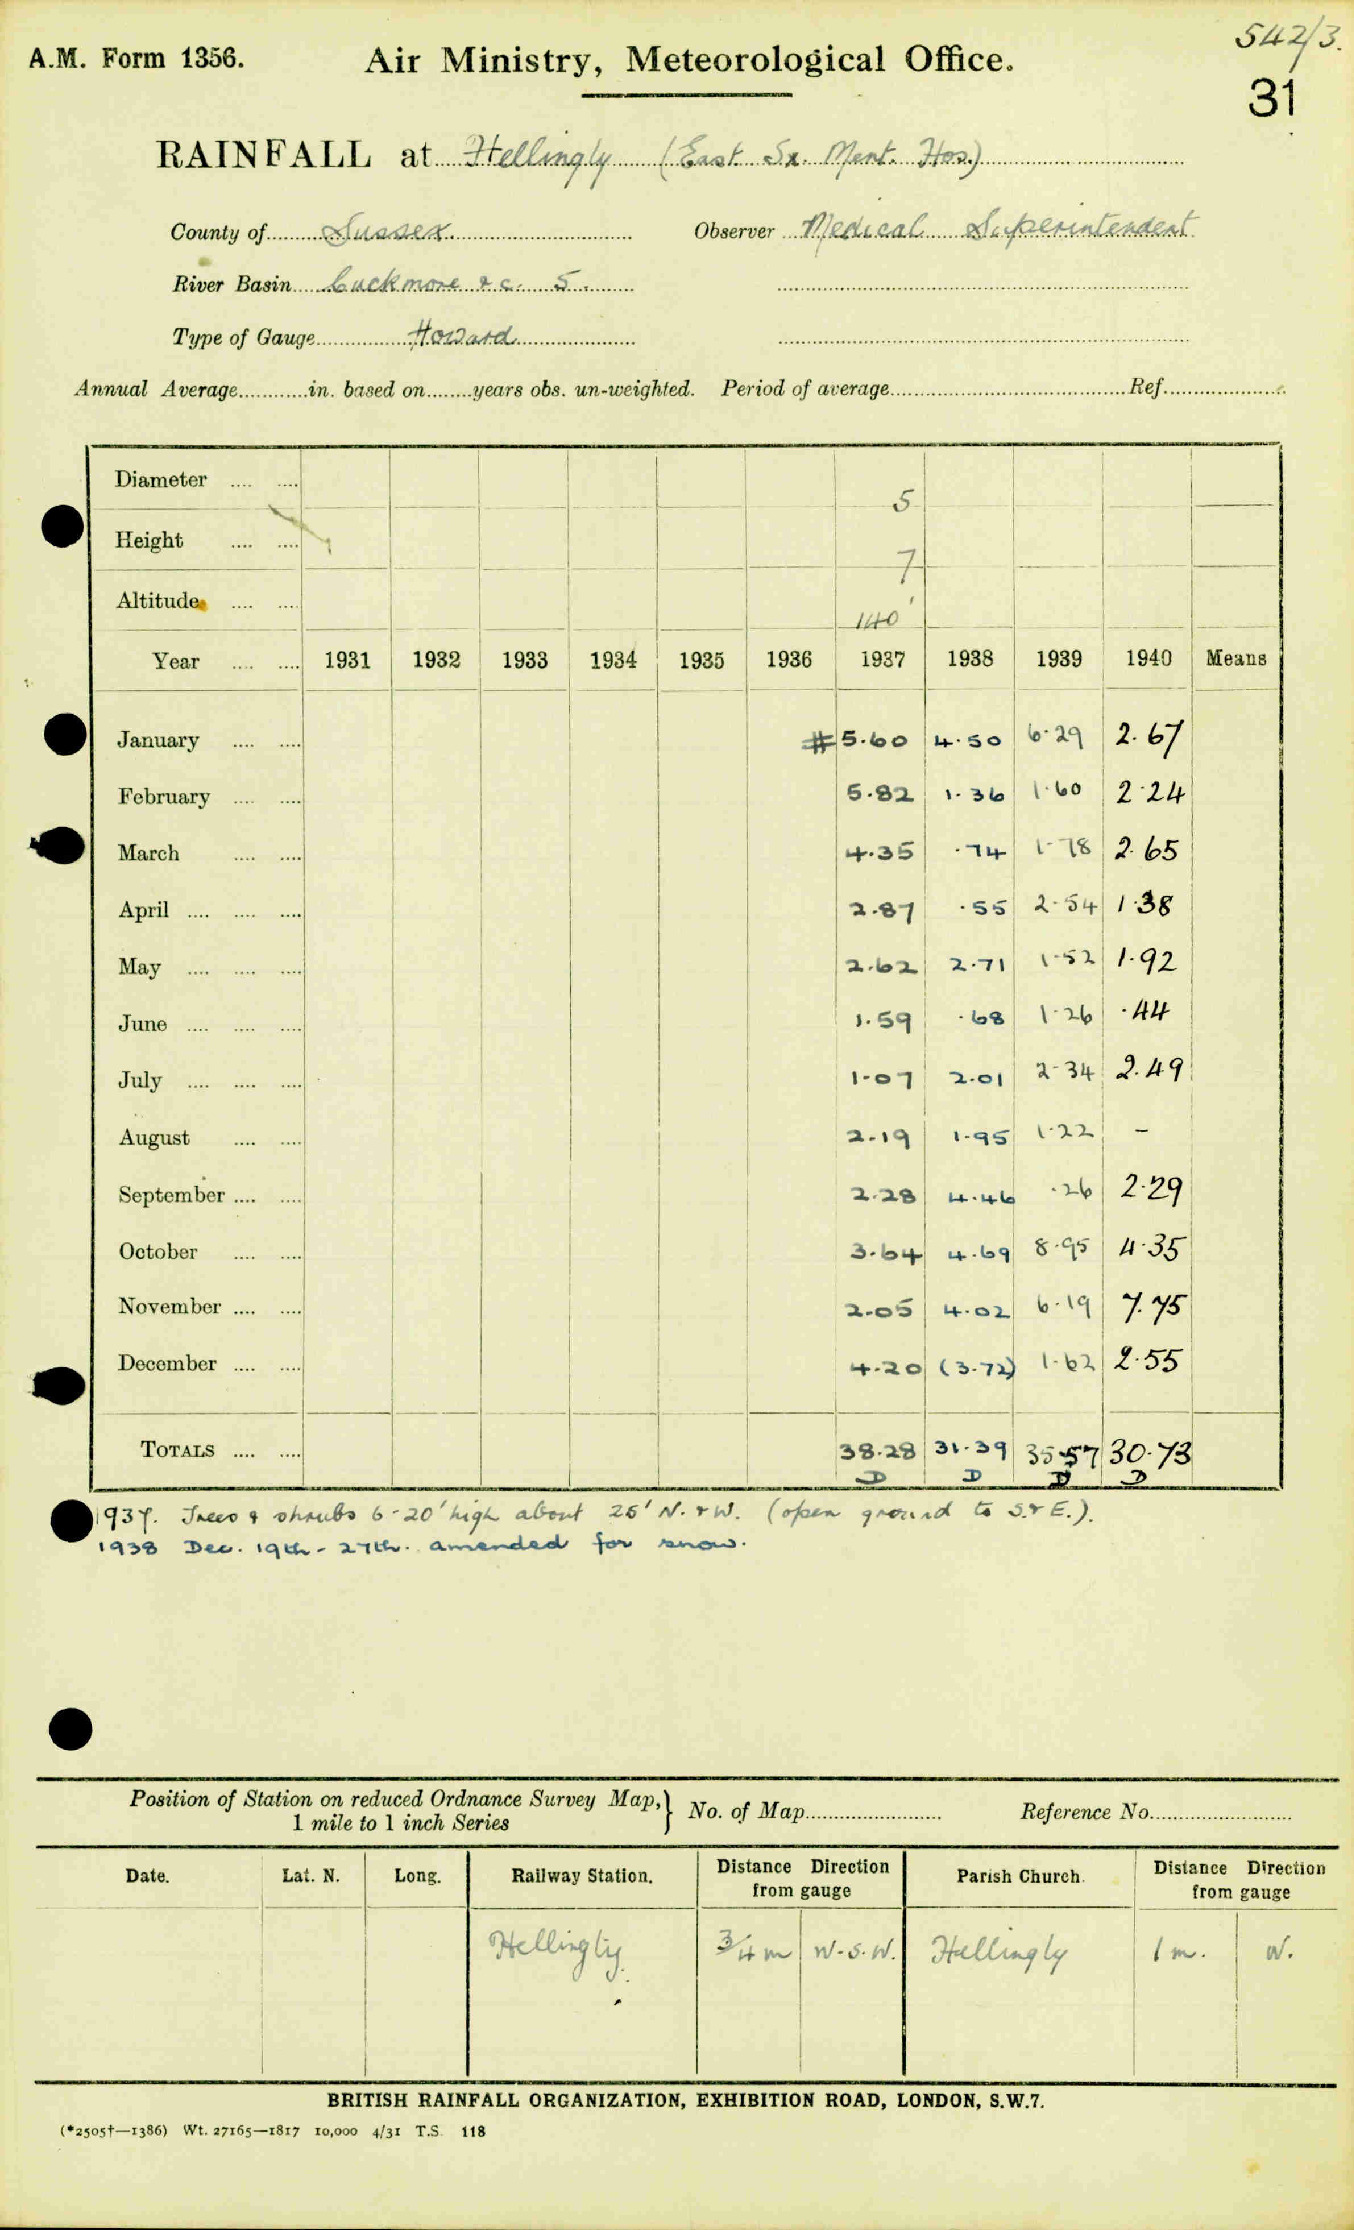 542/3.
A.M. Form 1356.
Air Ministry, Meteorological Office.
31
RAINFALL at Hellingly (East Sx. Ment. Hos.)
County of Sussex. Observer Medical Superintendent
River Basin Cuckmere &c. 5.
Type of Gauge Howard
Annual Average in. based on years obs. un-weighted. Period of average Ref.
Diameter 5
Height 7
Altitude 140'
Year 1931 1932 1933 1934 1935 1936 1937 1938 1939 1940 Means
January #5.60 4.50 6.29 2.67
February 5.82 1.36 1.60 2.24
March 4.35 .74 1.78 2.65
April 2.87 .55 2.54 1.38
May 2.62 2.71 1.52 1.92
June 1.59 .68 1.26 .44
July 1.07 2.01 2.34 2.49
August 2.19 1.95 1.22 -
September 2.28 4.46 .26 2.29
October 3.64 4.69 8.95 4.35
November 2.05 4.02 6.19 7.75
December 4.20 (3.72) 1.62 2.55
TOTALS 38.28 31.39 35.57 30.73
D D D D
1937. Trees & shrubs 6-20' high about 25' N. & W. (open ground to S. & E.).
1938 Dec. 19th - 27th. amended for snow.
Position of Station on reduced Ordnance Survey Map, } No. of Map Reference No.
1 mile to 1 inch Series
Date. Lat. N. Long. Railway Station. Distance Direction from gauge Parish Church. Distance Direction from gauge
Hellingly 3/4 m W.S.W. Hellingly 1 m. W.
BRITISH RAINFALL ORGANIZATION, EXHIBITION ROAD, LONDON, S.W.7.
(*2505†—1386) Wt. 27165—1817 10,000 4/31 T.S. 118